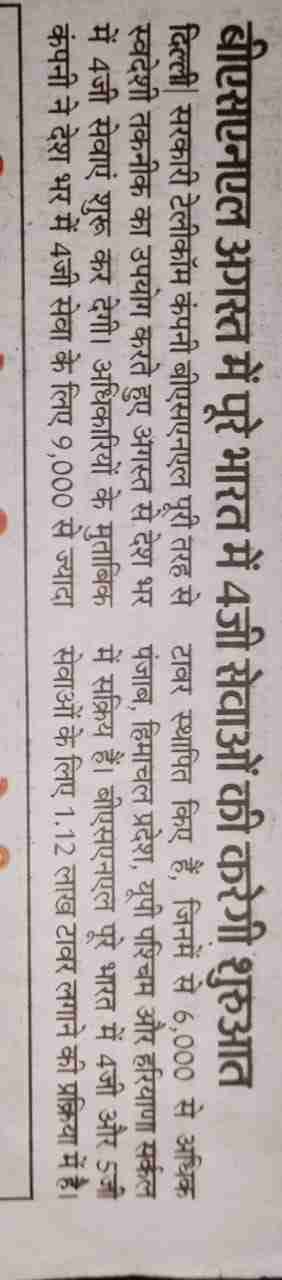 बीएसएनएल अगस्त में पूरे भारत में 4जी सेवाओं की करेगी शुरुआत
दिल्ली| सरकारी टेलीकॉम कंपनी बीएसएनएल पूरी तरह से
स्वदेशी तकनीक का उपयोग करते हुए अगस्त से देश भर
में 4जी सेवाएं शुरू कर देगी। अधिकारियों के मुताबिक
कंपनी ने देश भर में 4जी सेवा के लिए 9,000 से ज्यादा
टावर स्थापित किए हैं, जिनमें से 6,000 से अधिक
पंजाब, हिमाचल प्रदेश, यूपी पश्चिम और हरियाणा सर्कल
में सक्रिय हैं। बीएसएनएल पूरे भारत में 4जी और 5जी
सेवाओं के लिए 1.12 लाख टावर लगाने की प्रक्रिया में है।